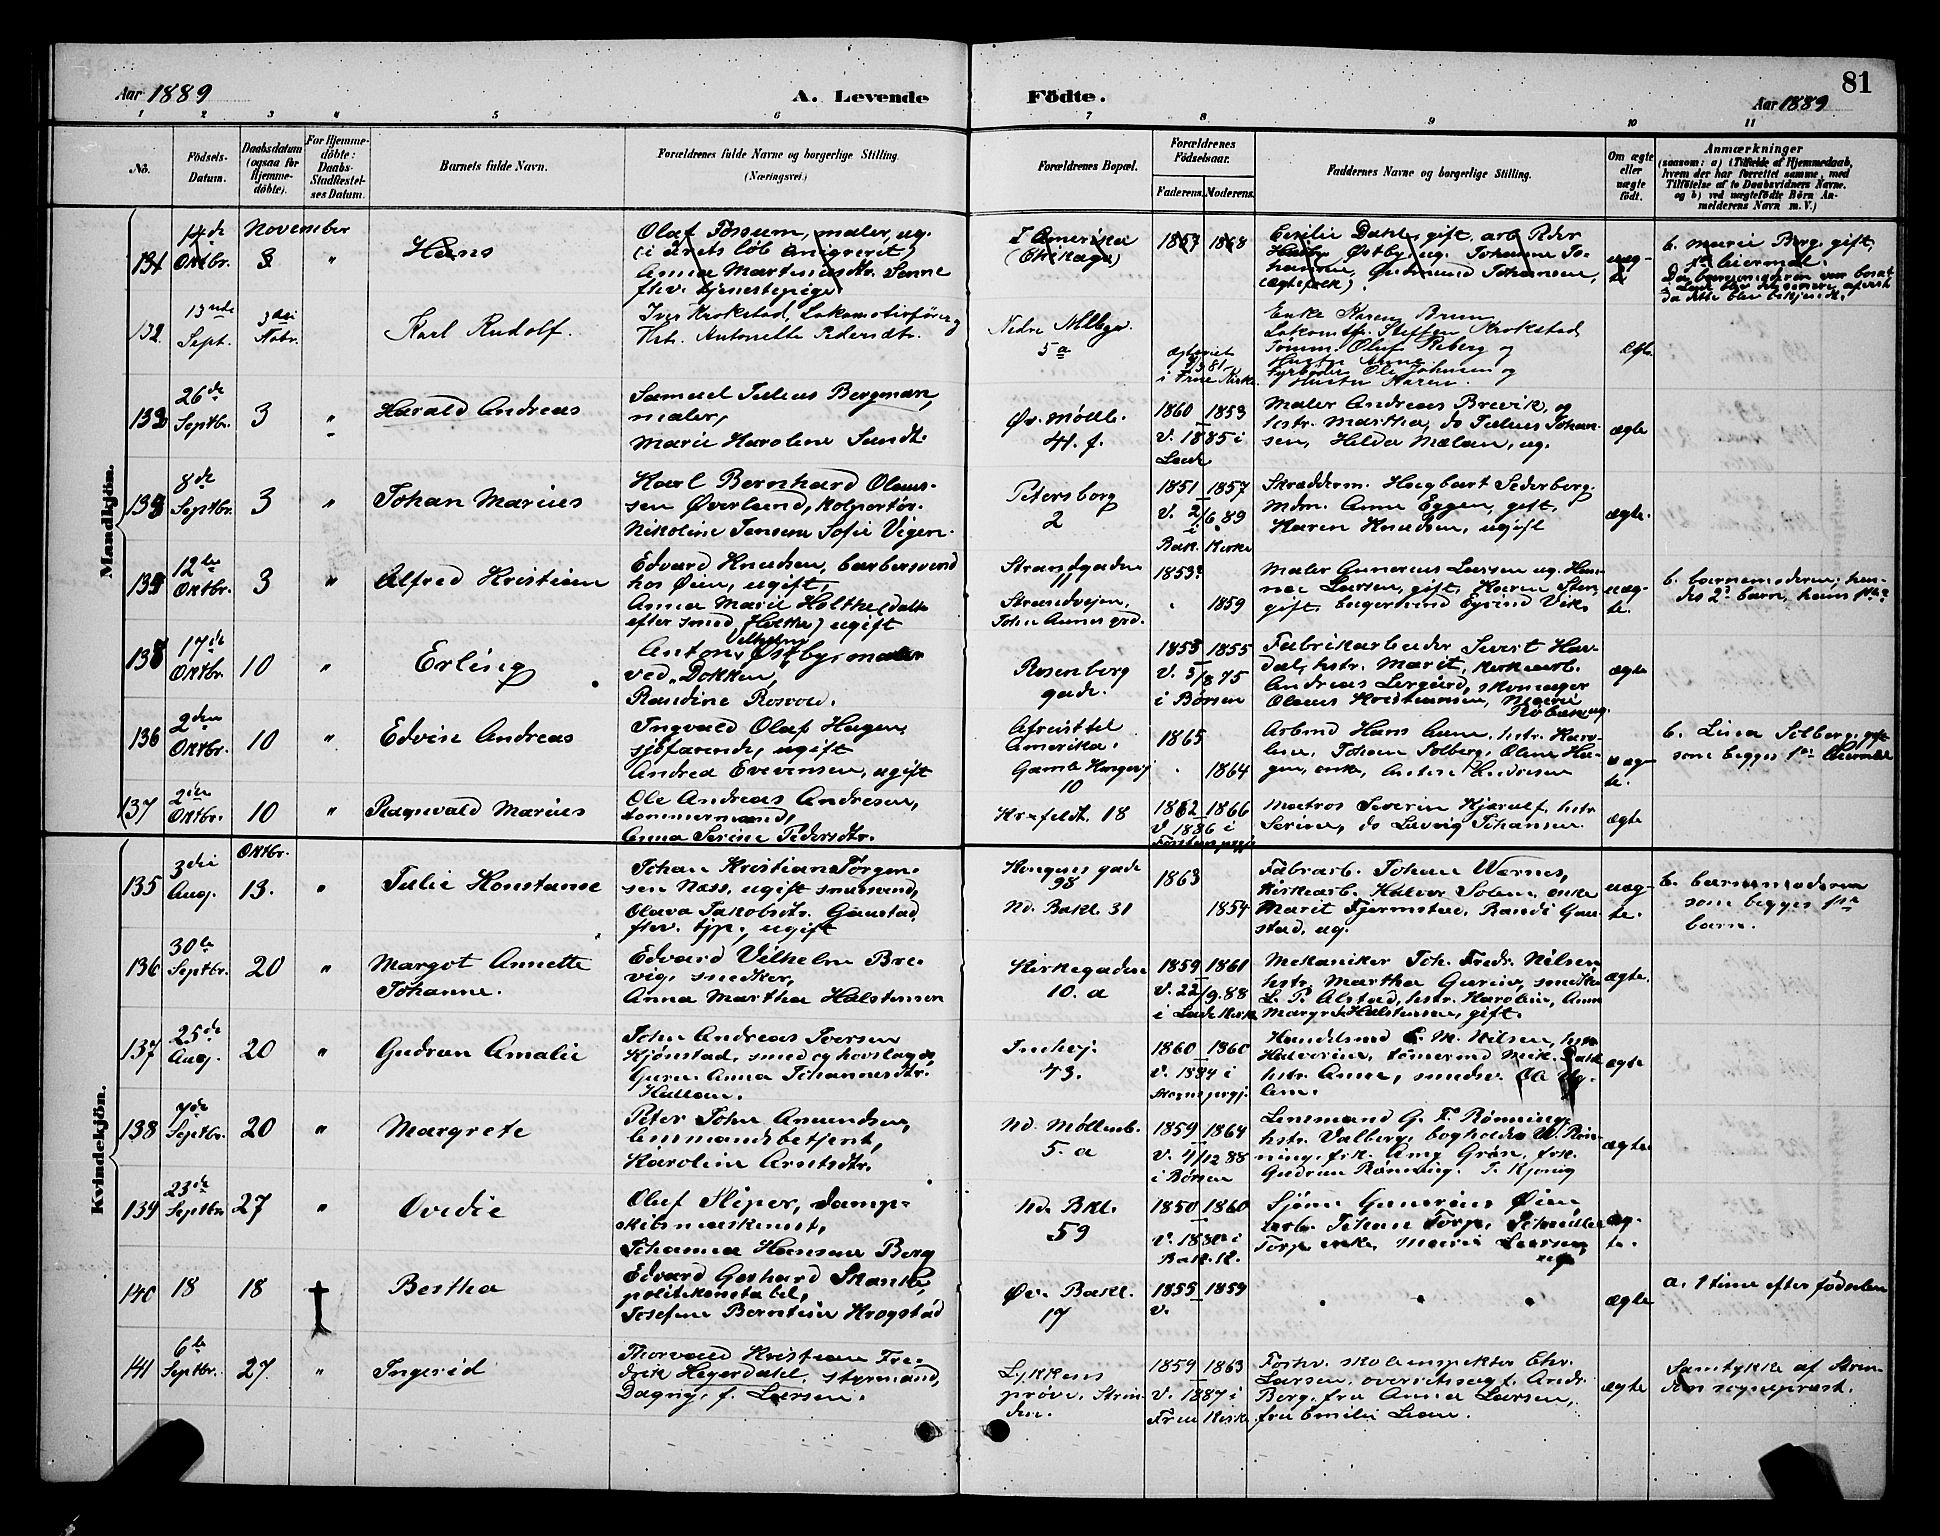 81
Aar 1889
A. Levende
Födte.
Aar 1889
1 2 3 4 5 6 7 8 9 10 11
No.
Födsels-
Datum.
Daabsdatum
(ogsaa for
Hjemme-
döbte).
For Hjemme-
döbte:
Daabs-
Stadfæstel-
ses Datum.
Barnets fulde Navn.
Forældrenes fulde Navne og borgerlige Stilling.
(Næringsvei.)
Forældrenes Bopæl.
Forældrenes
Födselsaar.
Faderens. Moderens.
Faddernes Navne og borgerlige Stilling.
Om ægte
eller
uægte
födt.
Anmærkninger
(saasom: a) i Tilfælde af Hjemmedaab,
hvem der har forrettet samme, med
Tilföielse af to Daabsvidners Navne,
og b) ved uægtefödte Börn An-
melderens Navn m. V.)
Mandkjön.
131
14de
Oktbr.
November
3
"
Hans
Olaf Fossum, maler, ug.
(i årets løb emigreret)
Anna Martinusdtr. Sanne
flv. tjenestepige
I Amerika
(Chikago)
1867 1868
Cecilie Dahl, gift, arb. Peder
Østby, ug. Johanne Jo-
hansen, Gudmund Johansen,
(ægtefolk).
uæg-
te
b. Marie Berg, gift,
1ste leiermål.
132
13nde
Sept.
3die
Novbr.
Karl Rudolf.
Iver Krokstad, Lokomotivfører og
Hst. Antonette Pedersdtr.
Nedre Allégd.
5a
i Frue Kirke
Enke Karen Bruun
Lokomtf. Steffen Krokstad
Tømm. Oluf Reberg og
Hustru Anne
Fyrbøder Ole Johnsen og
Hustru Karen.
Ægte.
133
26de
Septbr.
3
"
Harald Andreas
Samuel Julius Bergman,
maler,
Marie Karoline Sundt.
Øv. Møllb.
41. f.
1860 1853
V. 1885 i
Lade
Maler Andreas Brevik, og
hstr. Martha, do Julius Johan-
sen, Hilda Mælan, ug.
ægte
8de
Septbr.
3
"
Johan Marius
Karl Bernhard Olaus-
sen Øverland, kolportør.
Nikoline Jensen Sofie Vigen.
Petersborg
2
1851 1857
V. 2/6.89
i
Bak. Kirke
Skrædderm. Hagbart Sederberg,
Mdm. Anne Eggen, gift,
Karen Knudsen, ugift
ægte.
12te
Oktbr.
3
"
Alfred Kristian
Edvard Knudsen, barbersvend
hos Øien, ugift,
Anna Marie Holthe (datter
efter smed Holthe) ugift
Strandgaden
11
Strandveien,
John Aunes grd.
1853?
" 1859
Maler Gunerius Larsen ug. Han-
na Larsen, gift, Karen Sten,
gift, bagersvend Eyvind Vik.
uæg-
te.
b. barnemoderen, hen-
des 2det barn, hans 1ste?
17de
Oktbr.
10
"
Erling
Anton Vilhelm Østby, maler
ved "Dokken"
Randine Rosvold.
Rosenborg
gade.
1853 1855
V. 5/8 75
i Børsen
Fabrikarbeider Sivert Hav-
dal, hstr. Marit, kirkearb.
Andreas Lergård, skomager
Olaus Kristiansen, Marie
ug.
ægte
136
2den
Oktbr.
10
"
Edvin Andreas
Ingvald Olaf Hagen,
sjøfarende, ugift
Andrea Evensen, ugift
Afreist til
Amerika.
Gamle Kongevej
10
1865
" 1864
Arbmd Hans Aune, hstr. Karo-
line, Johan Solberg, Oline Ha-
gen, enke, Anton Andresen
uæg-
te.
b. Lina Solberg, gift
som begges 1ste leiermål
137
2den
Oktbr.
10
"
Ragnvald Marius
Ole Andreas Andresen,
tømmermand,
Anna Serine Pedersdtr.
Kr.feldt. 18
1862 1866
V. 1886 i
Matros Severin Hjarulf, hstr
Serine, do Ludvig Johansen.
ægte
Kvindekjön.
135
3die
Aug.
Oktbr.
13.
"
Julie Konstanse
Johan Kristian Jørgen-
sen Næss, ugift smedsvend,
Olava Jakobsdtr. Gaustad,
flv. tjp., ugift
Kongens gade
98
Nd. Bakl. 31
1863
1854
Fabrarb. Johan Wærnes,
kirkearb. Halvor Solem, enke
Marit Fjermstad, Randi Gau-
stad, ug.
uæg-
te.
b. barnemoderen
som begges 1ste
barn.
136
30te
Septbr.
20
"
Margot Annette
Johanne.
Edvard Vilhelm Bre-
vig, snedker,
Anna Martha Halstensen
Kirkegaden
10. a
1859 1861
V. 22/9.88
i Lade Kirke
Mekaniker Joh. Fredr. Nilsen
hstr. Martha Gurine, snedker
L. P. Alstad, hstr. Karoline, Anna
Margret Halstensen, gift.
ægte
137
25de
Aug.
20
"
Gudrun Amalie
John Andreas Iversen
Kjønstad, smed og hovslager,
Guru Anna Johannesdtr.
Kallem.
Indhej.
43.
1860 1860
V. 1884 i
Handelsmd E. M. Nilsen, hstr
Halvorine, tømermd Mik. Bakke
hstr. Anne, smedsv. Ole
ægte
138
7de
Septbr.
20
"
Margrete
Peter John Amundsen,
lensmandsbetjent,
Karoline Arntsdtr.
Nd. Møllenb.
5. a
1859 1864
V. 4/12 88
i Børsen
Lensmand G. F. Rønning,
hstr. Valborg, bogholder W. Røn-
ning, frk. Amy Grøn, frk.
Gudrun Rønning, T. Kjønig
ægte.
139
23de
Septbr
27
"
Ovedie
Oluf Sliper, damp-
skibsmaskinist,
Johanna Hansen Berg
Nd. Bakl.
59
1850 1860
Bak. K.
Sjöm. Gunerius Øien,
arbr. Johan Torp,
Torp enke, Marie Larsen,
ug.
æg-
te.
140
18
18
†
Bertha
Edvard Gerhard Skanke,
politikonstabel,
Josefine Berntine Krogstad
Øv. Bakl.
17
1855 1859
V.
" " "
ægte
a. 1 time efter fødselen
141
6te
Septbr.
27.
"
Ingerid
Thorvald Kristian Fre-
drik Hegerdahl, styrmand,
Dagny, f. Larsen.
Lykkens
prøve, Strin-
den.
1859 1863
V. 1887 i
Frue Kirke
Forhv. skoleinspektør Chr.
Larsen, overretssagf. Andr.
Berg, fru Anna Larsen,
fru Emilie Lian.
ægte
Samtykke af Strin-
dens sogneprest.